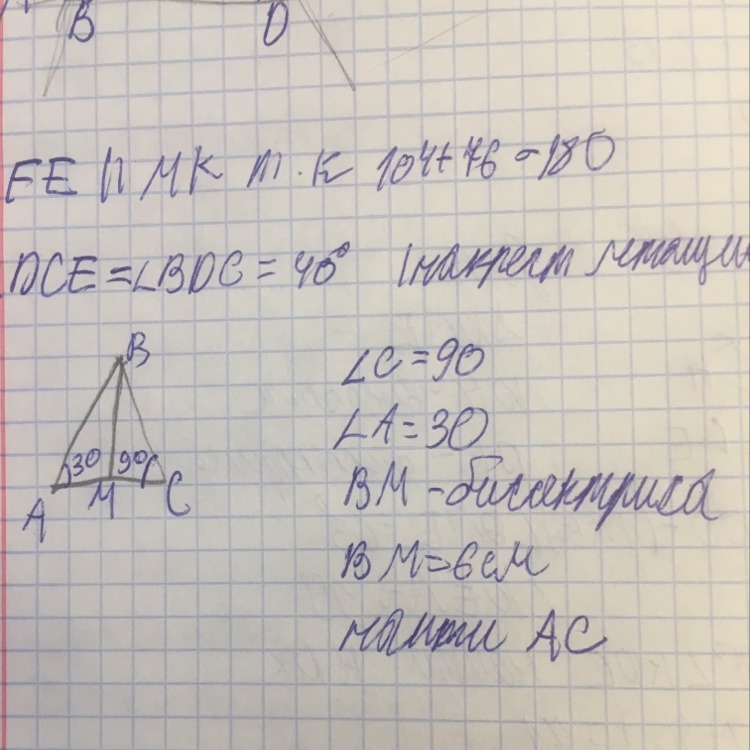 B D
EE || МК т.к 104+76=180
DCE=∠BDC=40° (накрест лежащи
B
∠C=90
30 90
∠A=30
A M C
BM-биссектриса
BM=6см
найти AC